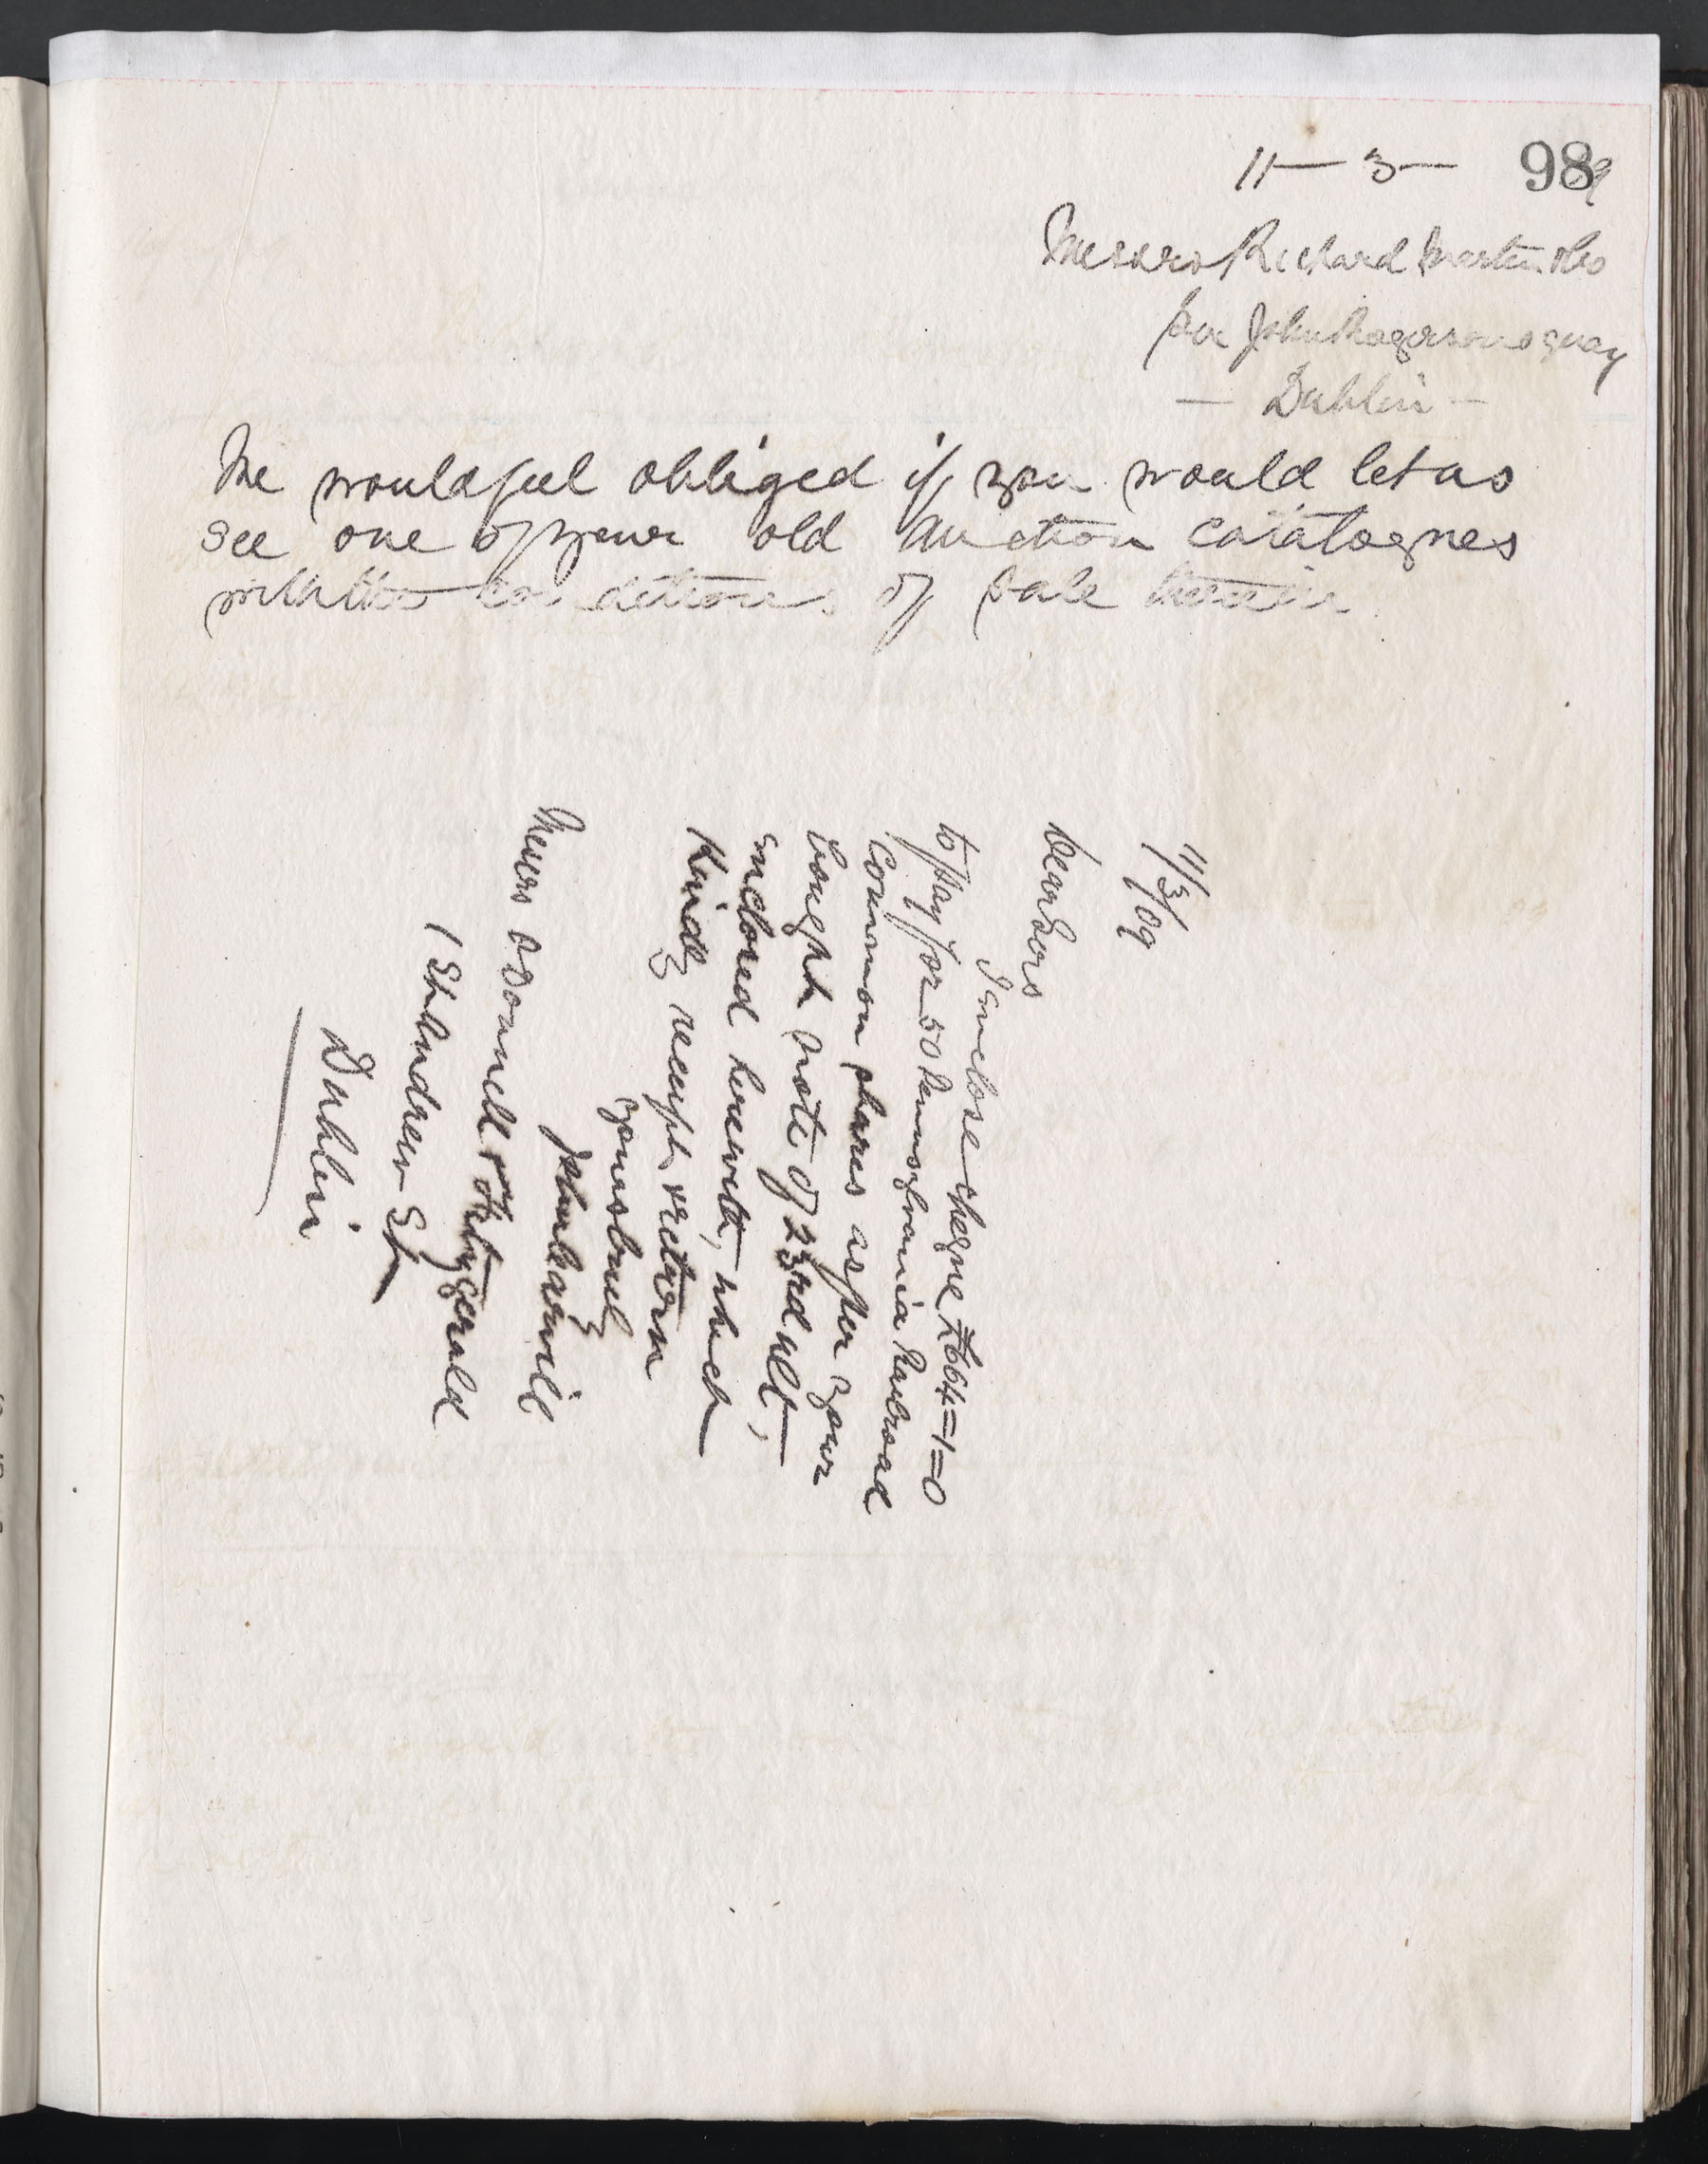 11 - 3 - 9
98
Messrs Richard Martin & Co
Sir John Rogersons quay
- Dublin -
We would feel obliged if you would let us
see one of your old auction catalogues
with the conditions of sale therein.
11/3/09
Dear Sirs
I enclose cheque £664=1=0
to pay for 50 Pennsylvania Railroad
Common shares as per your
bought note of 23rd ult,
enclosed herewith, which
Kindly receipt & return
yours truly
John
Messrs O Donnell & Fitzgerald
1 St Andrew St
Dublin